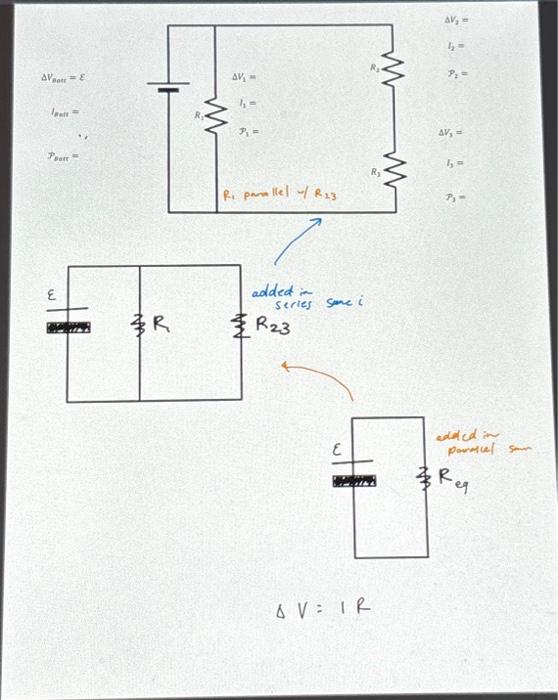 ΔV₂ =
I₂ =
P₂ =
ΔV_Batt = ε
I_Batt =
P_Batt =
ΔV₁ =
I₁ =
P₁ =
R₁
R₂
R₃
ΔV₃ =
I₃ =
P₃ =
R₁ parallel w/ R₂₃
added in
series same i
ε
R₁
R₂₃
added in
parallel
ε
R_eq
ΔV = IR